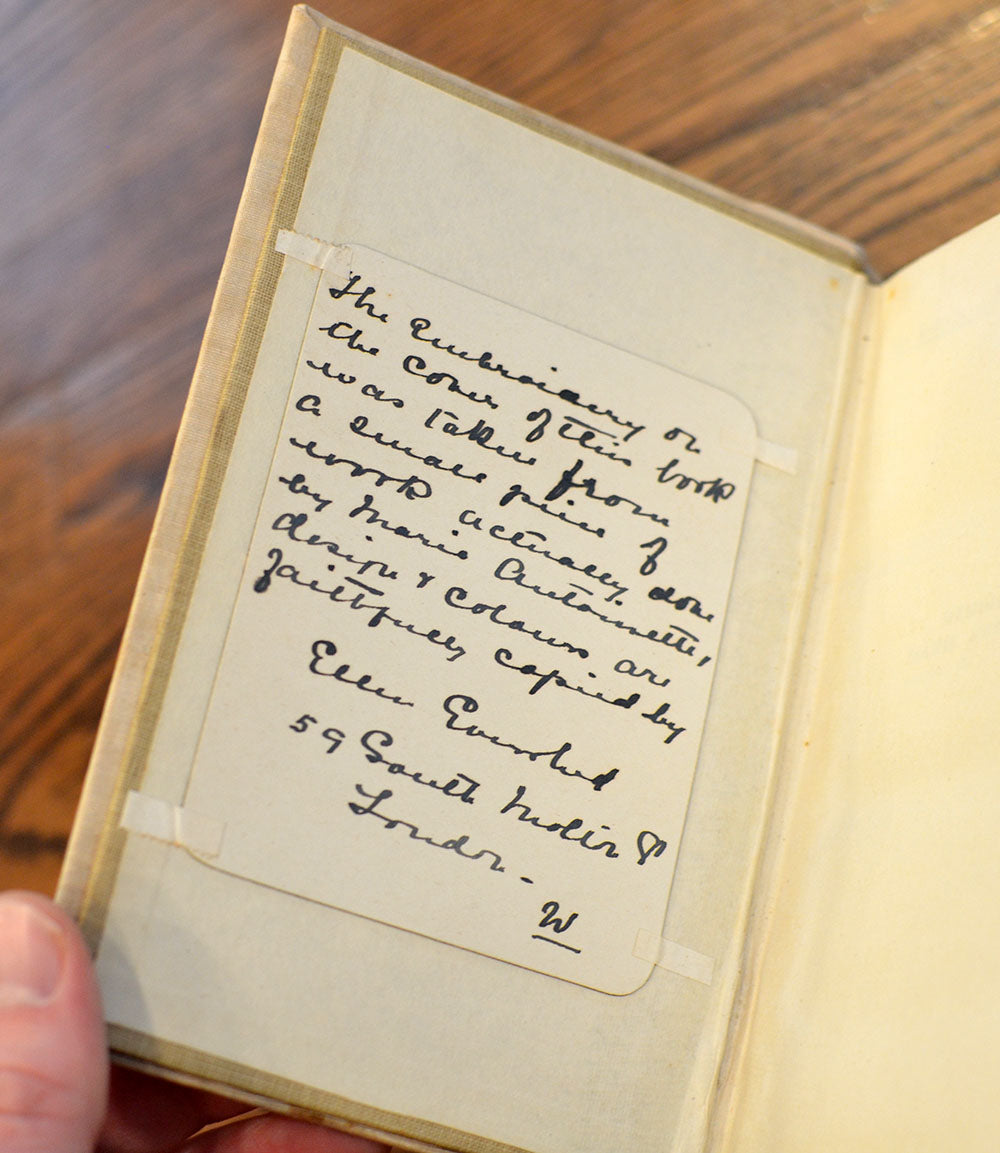 The Embroidery on
the cover of this book
was taken from
a small piece of
work actually done
by Marie Antoinette,
design & colours are
faithfully copied by
Ellen Evershed
59 South Molton St
London -
W